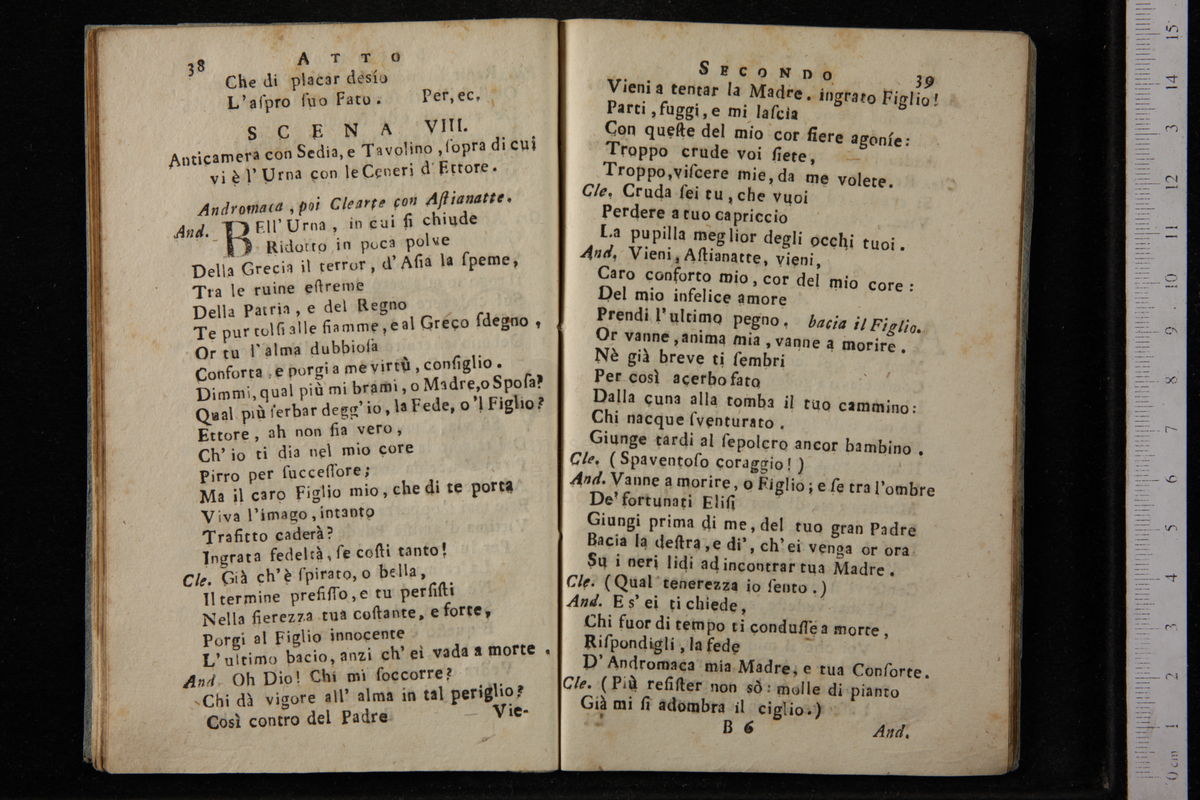 38 ATTO
Che di placar desío
L'aſpro ſuo Fato. Per, ec.
SCENA VIII.
Anticamera con Sedia, e Tavolino, ſopra di cui
vi è l'Urna con le Ceneri d'Ettore.
Andromaca, poi Clearte con Aſtianatte.
And. BEll'Urna, in cui ſi chiude
Ridotto in poca polve
Della Grecia il terror, d'Aſia la ſpeme,
Tra le ruine eſtreme
Della Patria, e del Regno
Te pur tolſi alle fiamme, e al Greco ſdegno,
Or tu l'alma dubbioſa
Conforta, e porgi a me virtù, conſiglio.
Dimmi, qual più mi brami, o Madre, o Spoſa?
Qual più ſerbar degg'io, la Fede, o'l Figlio?
Ettore, ah non fia vero,
Ch'io ti dia nel mio core
Pirro per ſucceſſore;
Ma il caro Figlio mio, che di te porta
Viva l'imago, intanto
Trafitto caderà?
Ingrata fedeltà, ſe coſti tanto!
Cle. Già ch'è ſpirato, o bella,
Il termine prefiſſo, e tu perſiſti
Nella fierezza tua coſtante, e forte,
Porgi al Figlio innocente
L'ultimo bacio, anzi ch'ei vada a morte.
And. Oh Dio! Chi mi ſoccorre?
Chi dà vigore all'alma in tal periglio?
Così contro del Padre
Vie-
SECONDO 39
Vieni a tentar la Madre. ingrato Figlio!
Parti, fuggi, e mi laſcia
Con queſte del mio cor fiere agoníe:
Troppo crude voi ſiete,
Troppo, viſcere mie, da me volete.
Cle. Cruda ſei tu, che vuoi
Perdere a tuo capriccio
La pupilla meglior degli occhi tuoi.
And. Vieni, Aſtianatte, vieni,
Caro conforto mio, cor del mio core:
Del mio infelice amore
Prendi l'ultimo pegno. bacia il Figlio.
Or vanne, anima mia, vanne a morire.
Nè già breve ti ſembri
Per così acerbo fato
Dalla cuna alla tomba il tuo cammino:
Chi nacque ſventurato,
Giunge tardi al ſepolcro ancor bambino.
Cle. (Spaventoſo coraggio!)
And. Vanne a morire, o Figlio; e ſe tra l'ombre
De' fortunati Eliſi
Giungi prima di me, del tuo gran Padre
Bacia la deſtra, e di', ch'ei venga or ora
Su i neri lidi ad incontrar tua Madre.
Cle. (Qual tenerezza io ſento.)
And. E s'ei ti chiede,
Chi fuor di tempo ti conduſſe a morte,
Riſpondigli, la fede
D'Andromaca mia Madre, e tua Conſorte.
Cle. (Più reſiſter non sò: molle di pianto
Già mi ſi adombra il ciglio.)
B 6 And.
0 cm 1 2 3 4 5 6 7 8 9 10 11 12 13 14 15